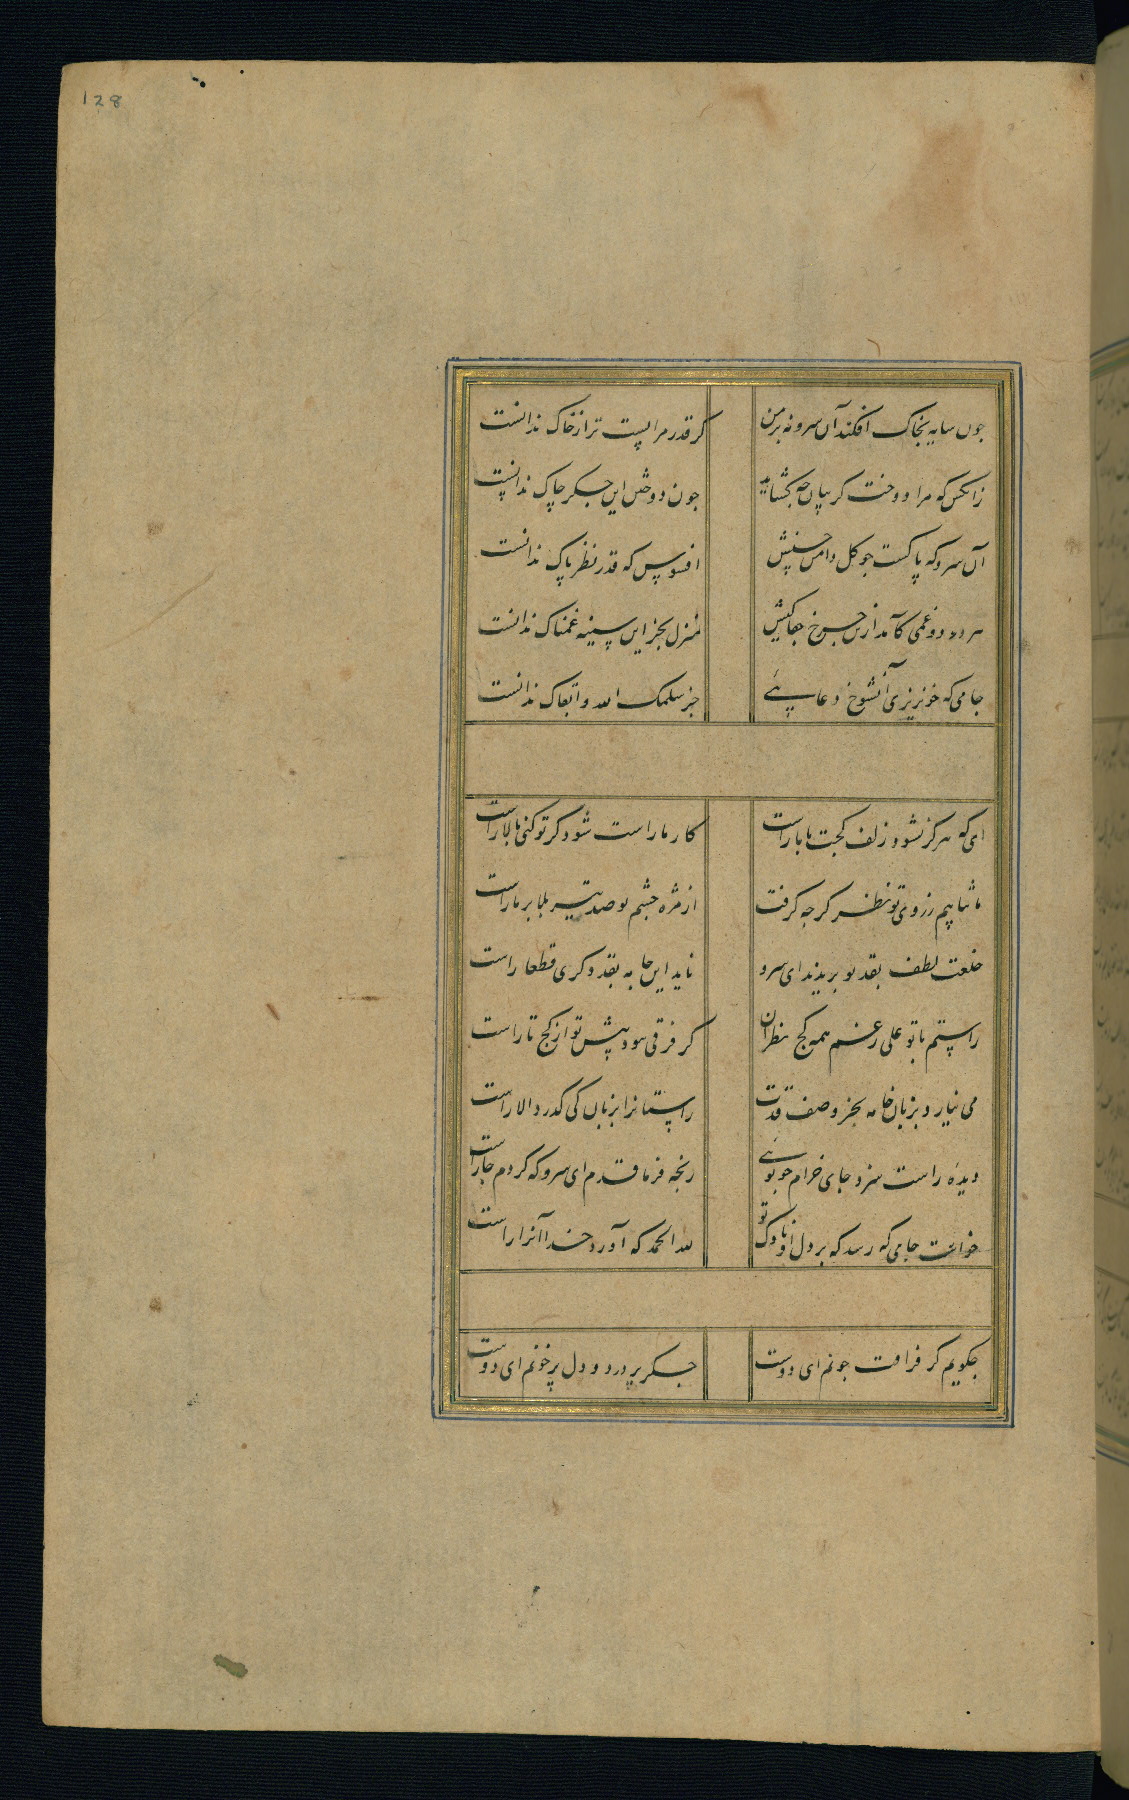 128
چون سایه بخاک افکند آن سرو نه بر من کر قدر مرا پست تر از خاک ندانست
زانکس که مرا دوخت کریبان چه کشاید چون دوختن این جکر چاک ندانست
آن سرو که پاکست چو کل دامن حسنش افسوس که قدر نظر پاک ندانست
هر درد و غمی کآمد ازین چرخ جفاکیش منزل بجز این سینه غمناک ندانست
جامی که خونریزی آنشوخ دعا جز سلمک الله و ابقاک ندانست
ای که هرکز نشود زلف کجت با ما راست کار ما راست شود کر تو کنی بالا راست
ما نتابیم ز روی تو نظر کرچه کرفت از مژه چشم تو صد تیر بلا بر ما راست
خلعت لطف بقد تو بریدند ای سرو ناید این جامه بقد دکری قطعا راست
راستم با تو علی رغم همه کج نظران کر فرقی بود پیش تو از کج تا راست
می نیارد بزبان خامه بجز وصف قدت راستانرا بزبان کی کذرد الا راست
دیده راست سزد جای خرام چو تویی رنجه فرما قدم ای سرو که کردم جا راست
خواست جامی که رسد که بر دل او ناوک تو لله الحمد که آورد خدا آنرا راست
چکویم کز فراقت چونم ای دوست جکر پر درد و دل پر خونم ای دوست